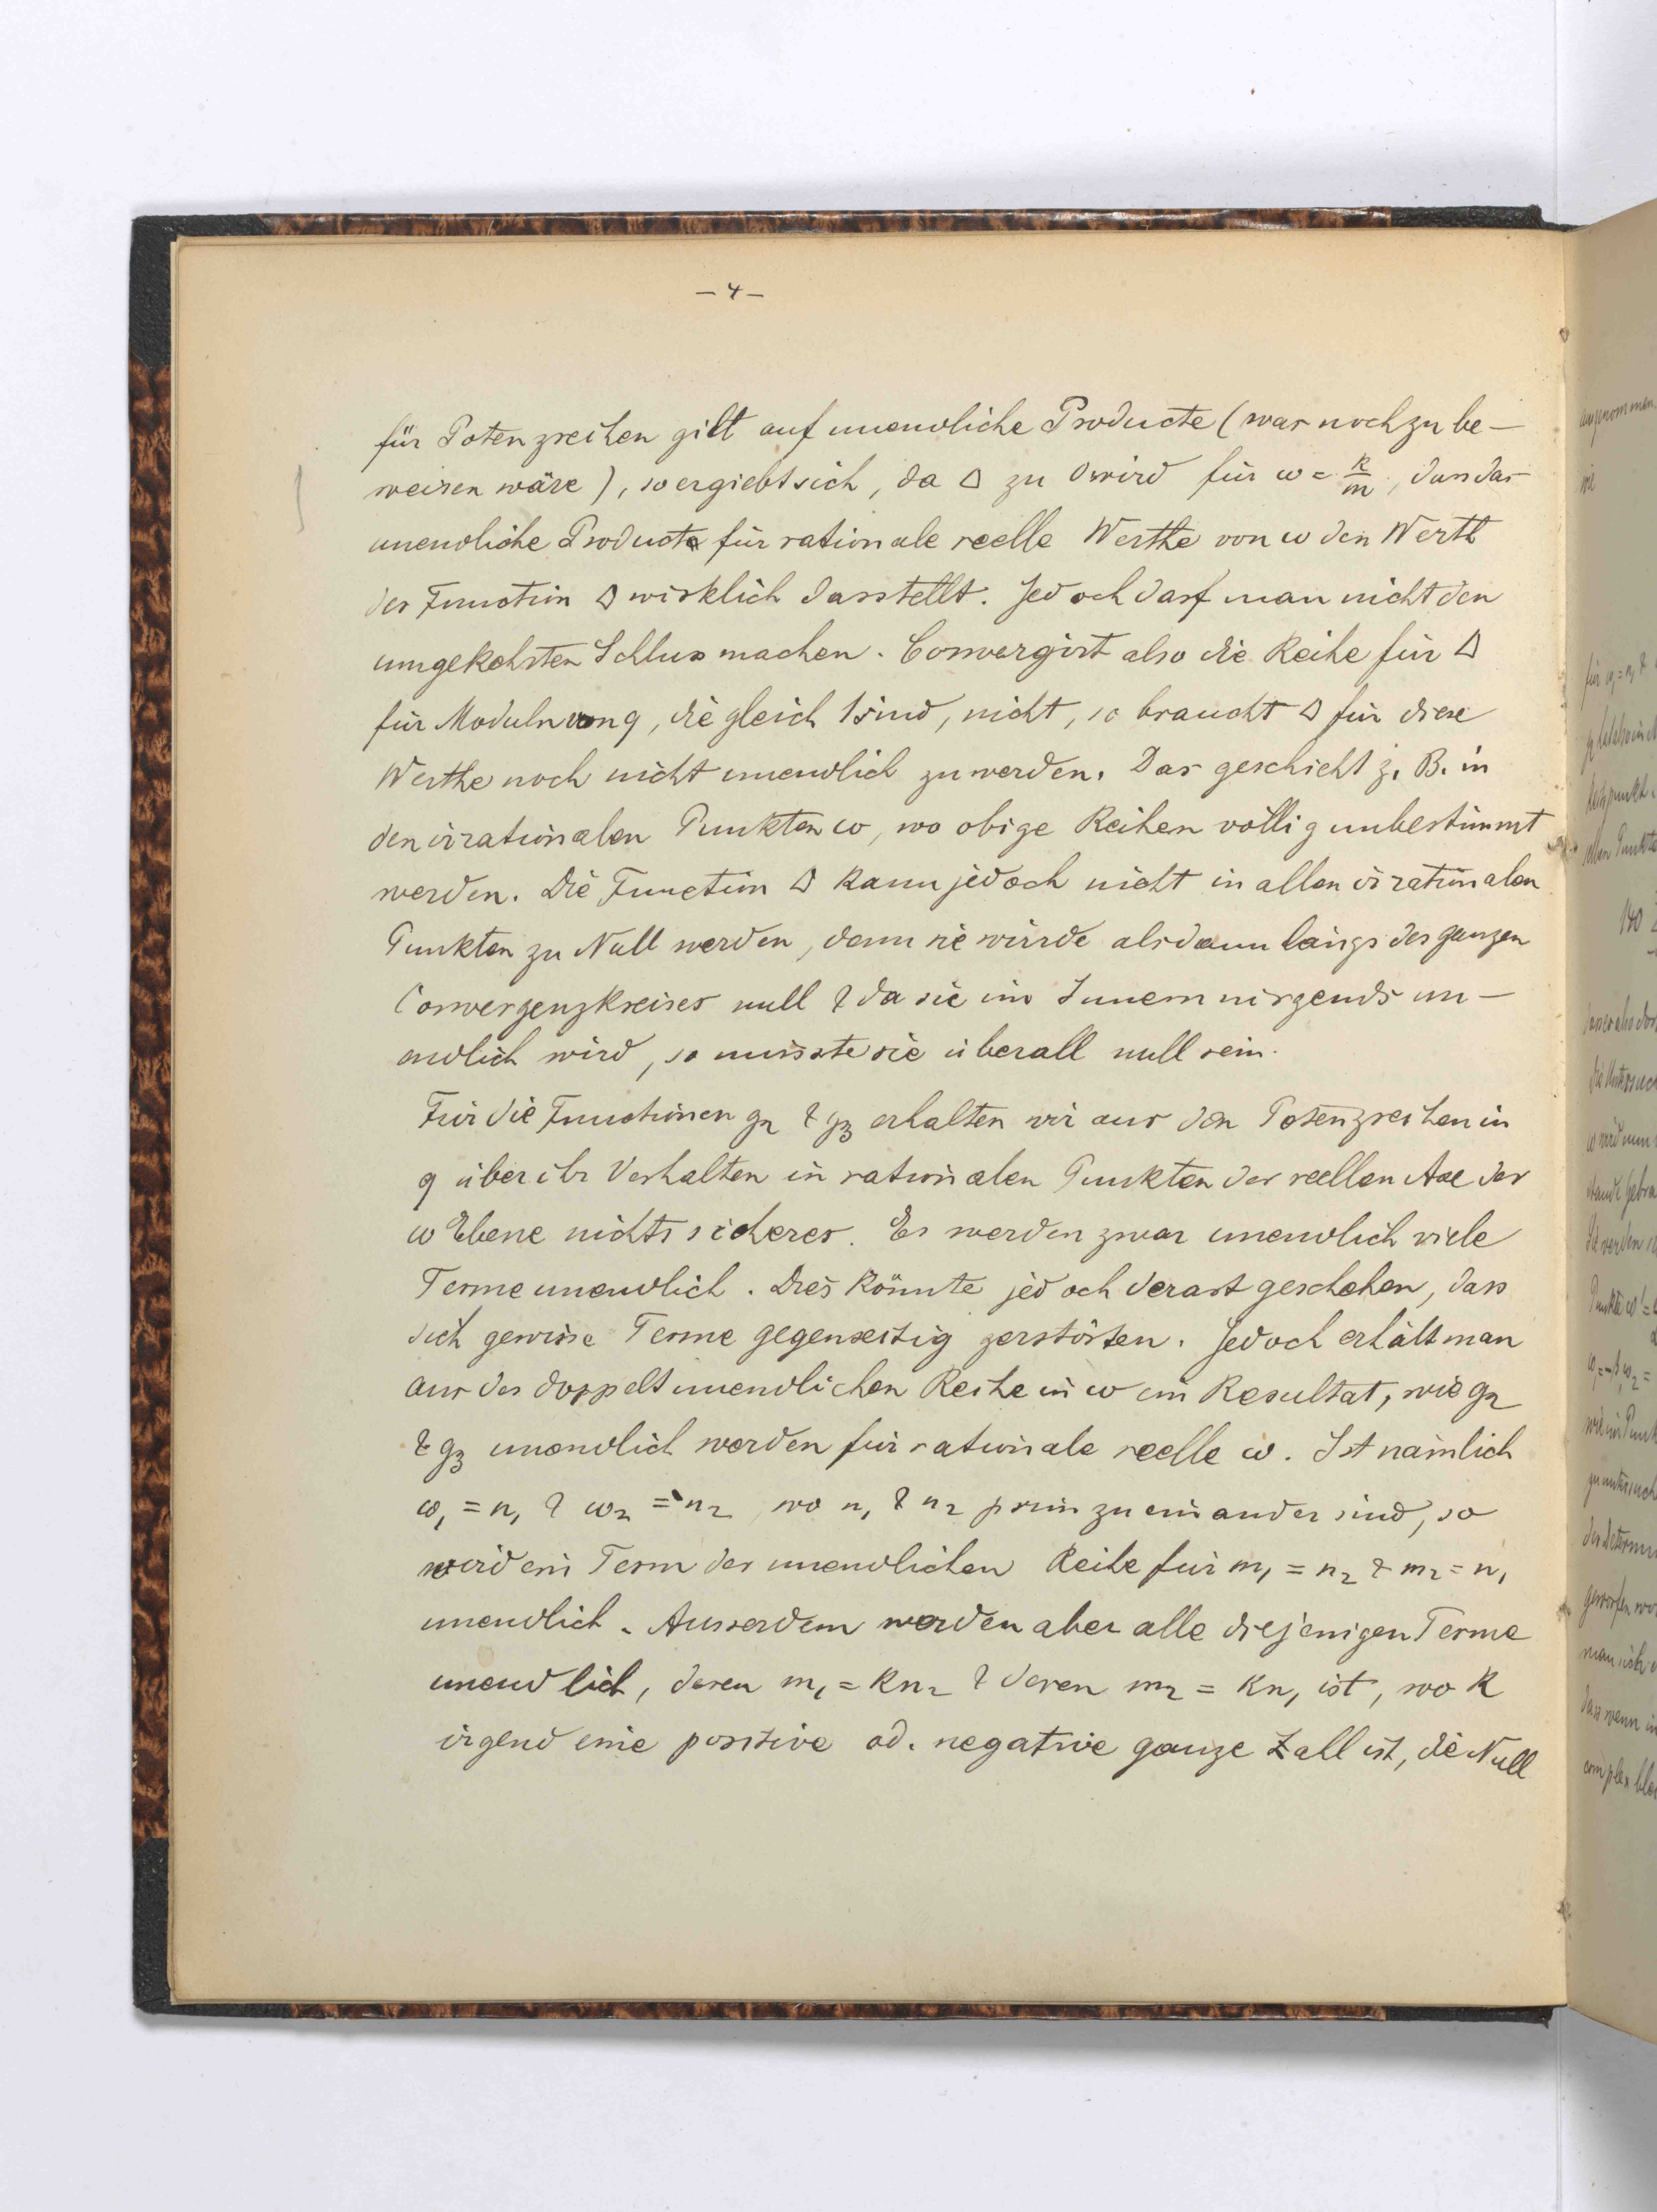 – 4 –
für Potenzreihen gilt auf unendliche Producte (was noch zu be–
weisen wäre), so ergiebt sich, da Δ zu 0 wird für ω = k/m, dass das
unendliche Producte für rationale reelle Werthe von ω den Werth
der Function Δ wirklich darstellt. Jedoch darf man nicht den
umgekehrten Schluss machen. Convergirt also die Reihe für Δ
für Moduln von q, die gleich 1 sind, nicht, so braucht Δ für diese
Werthe noch nicht unendlich zu werden. Das geschieht z. B. in
den irrationalen Punkten ω, wo obige Reihen völlig unbestimmt
werden. Die Function Δ kann jedoch nicht in allen irrationalen
Punkten zu Null werden, denn sie würde alsdann längs des ganzen
Convergenzkreises null & da sie im Innern nirgends un–
endlich wird, so müsste sie überall null sein.
Für die Functionen g2 & g3 erhalten wir aus den Potenzreihen in
q über ihr Verhalten in rationalen Punkten der reellen Axe der
ω Ebene nichts sicheres. Es werden zwar unendlich viele
Terme unendlich. Dies könnte jedoch derart geschehen, dass
sich gewisse Terme gegenseitig zerstörten. Jedoch erhält man
aus der doppelt unendlichen Reihe in ω ein Resultat, wie g2
& g3 unendlich werden für rationale reelle ω. Ist nämlich
ω1 = n1 & ω2 = n2 wo n1 & n2 prim zu einander sind, so
wird ein Term der unendlichen Reihe für m1 = n2 & m2 = n1
unendlich. Ausserdem werden aber alle diejenigen Terme
unendlich, deren m1 = kn2 & deren m2 = kn1 ist, wo k
irgend eine positive od. negative ganze Zahl ist, die Null